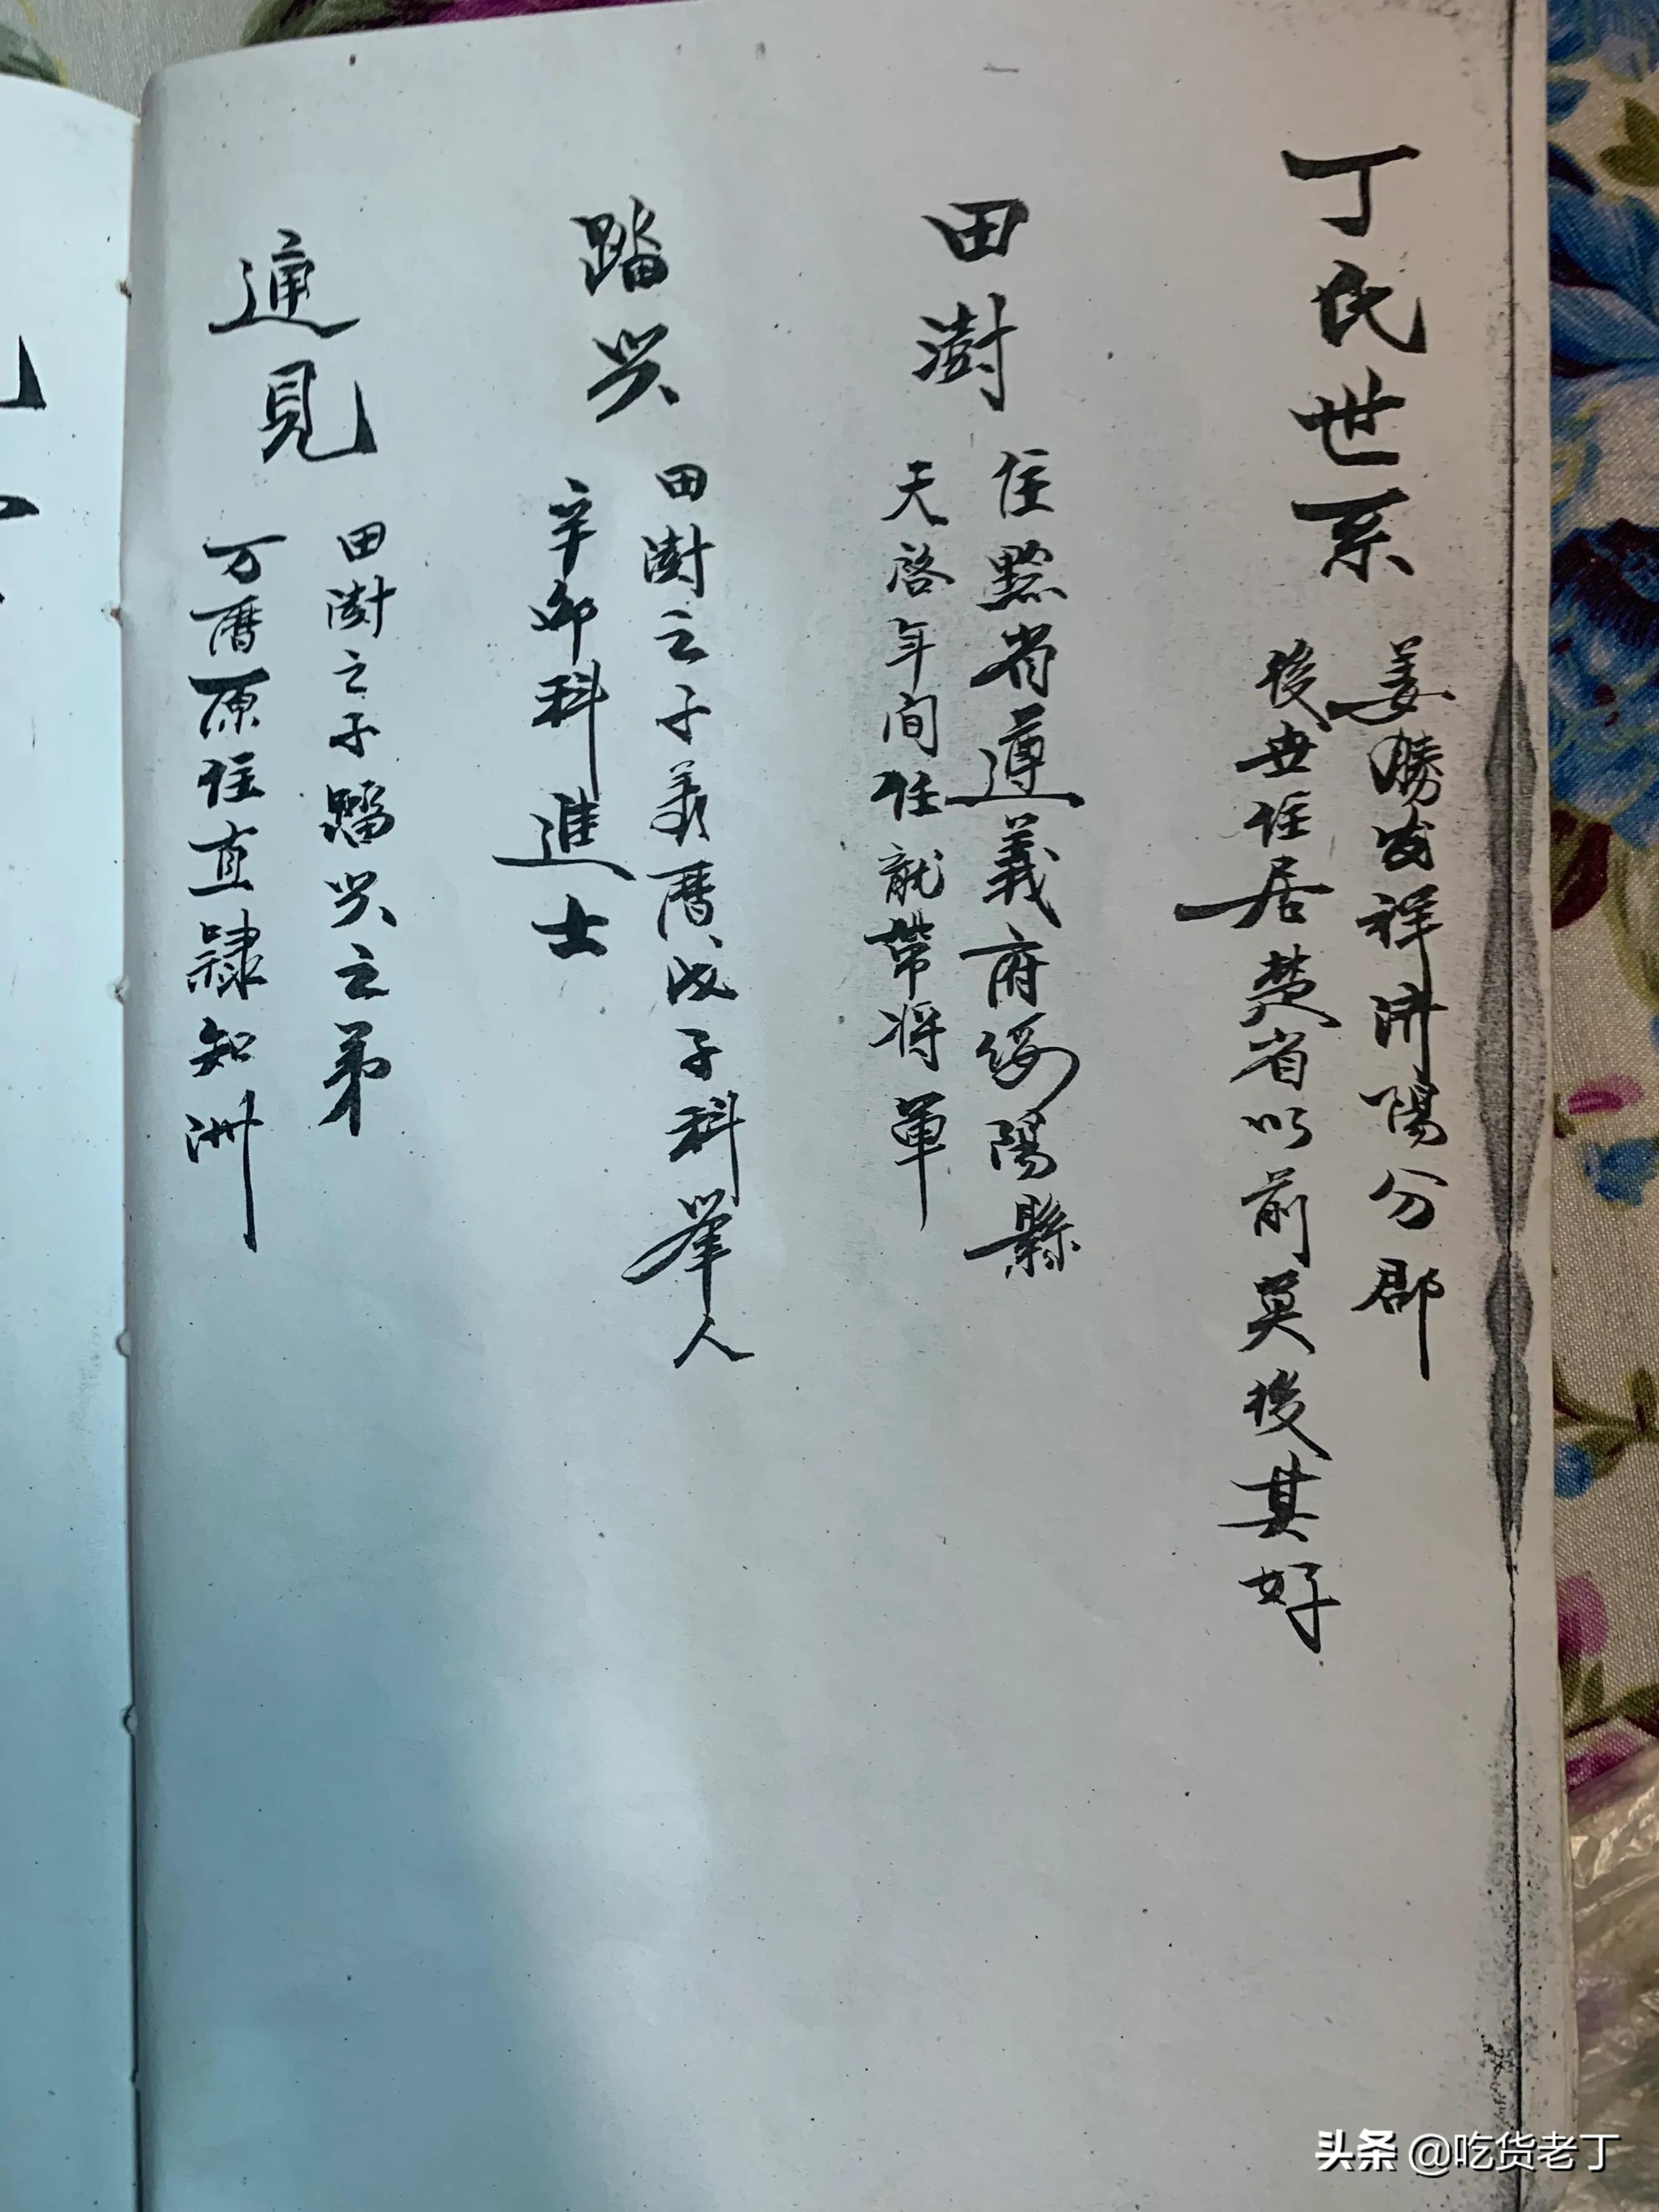 丁氏世系
姜勝发祥济陽分郡
後世住居楚省以前莫後其好
田澍
住黔省遵義府綏陽縣
天啓年间任就帶将軍
踏兴
田澍之子義曆戊子科举人
辛卯科進士
通見
田澍之子踏兴之弟
万曆原任直隸知洲
头条 @吃货老丁